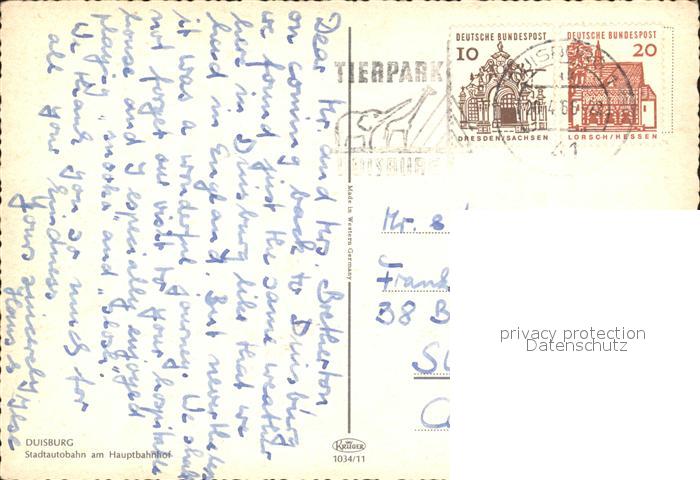 Dear Mr and Mrs. Bretherton
on coming back to Duisburg
we found just the same weather
here in Duisburg like that we
had in England. But nevertheless
it was a wonderful journey. We shall
not forget our visit to your hospitable
house and I especially enjoyed
playing "snooker" and
We thank you so much for
all your kindness
Yours sincerely
Hans & Ilse
DUISBURG
Stadtautobahn am Hauptbahnhof
Made in Western Germany
KRÜGER
1034/11
TIERPARK
DUISBURG
DEUTSCHE BUNDESPOST
10
DRESDEN/SACHSEN
DEUTSCHE BUNDESPOST
20
LORSCH/HESSEN
41
Mr. &
Frank
38 B
privacy protection
Datenschutz